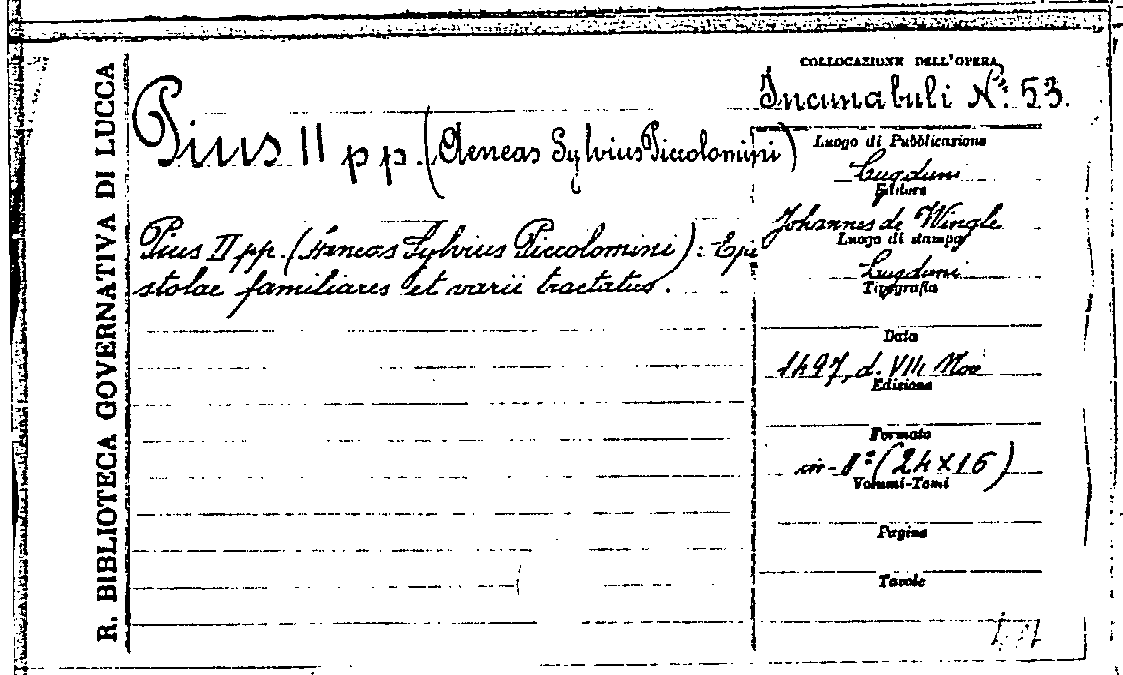 R. BIBLIOTECA GOVERNATIVA DI LUCCA
COLLOCAZIONE DELL'OPERA
Incunabuli N.º 53.
Pius II pp. (Aeneas Sylvius Piccolomini)
Pius II pp. (Aeneas Sylvius Piccolomini): Epi
stolae familiares et varii tractatus.
Luogo di Pubblicazione
Lugduni
Editore
Johannes de Wingle
Luogo di stampa
Lugduni
Tipografia
Data
1497, d. VIII Nov
Edizione
Formato
in-8º (24x16)
Volumi-Tomi
Pagine
Tavole